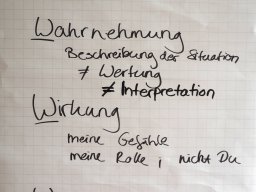 Wahrnehmung
Beschreibung der Situation
≠ Wertung
≠ Interpretation
Wirkung
meine Gefühle
meine Rolle ; nicht Du